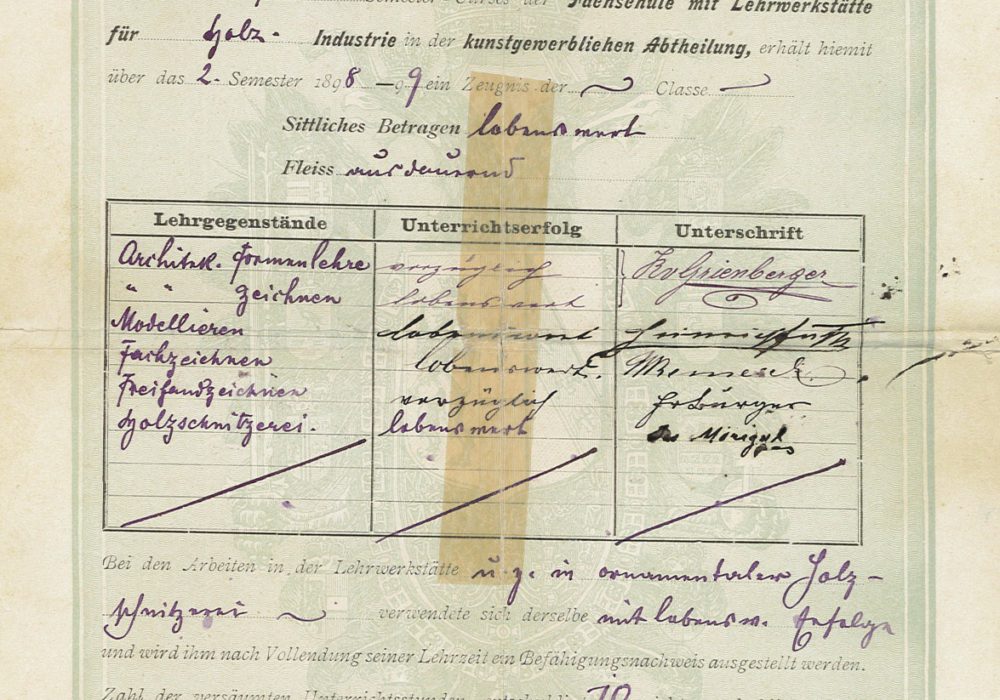 Semester-Curses der Fachschule mit Lehrwerkstätte
für Holz- Industrie in der kunstgewerblichen Abtheilung, erhält hiemit
über das 2. Semester 1898–99 ein Zeugnis der Classe
Sittliches Betragen lobenswert
Fleiss ausdauernd
Lehrgegenstände Unterrichtserfolg Unterschrift
Architek. Formenlehre vorzüglich KvGrienberger
" " zeichnen lobenswert
Modellieren lobenswert
Fachzeichnen lobenswert.
Freihandzeichnen vorzüglich
Holzschnitzerei. lobenswert
Bei den Arbeiten in der Lehrwerkstätte u. z. in ornamentaler Holz-
schnitzerei verwendete sich derselbe mit lobensw. Erfolge
und wird ihm nach Vollendung seiner Lehrzeit ein Befähigungsnachweis ausgestellt werden.
Zahl der versäumten Unterrichtsstunden